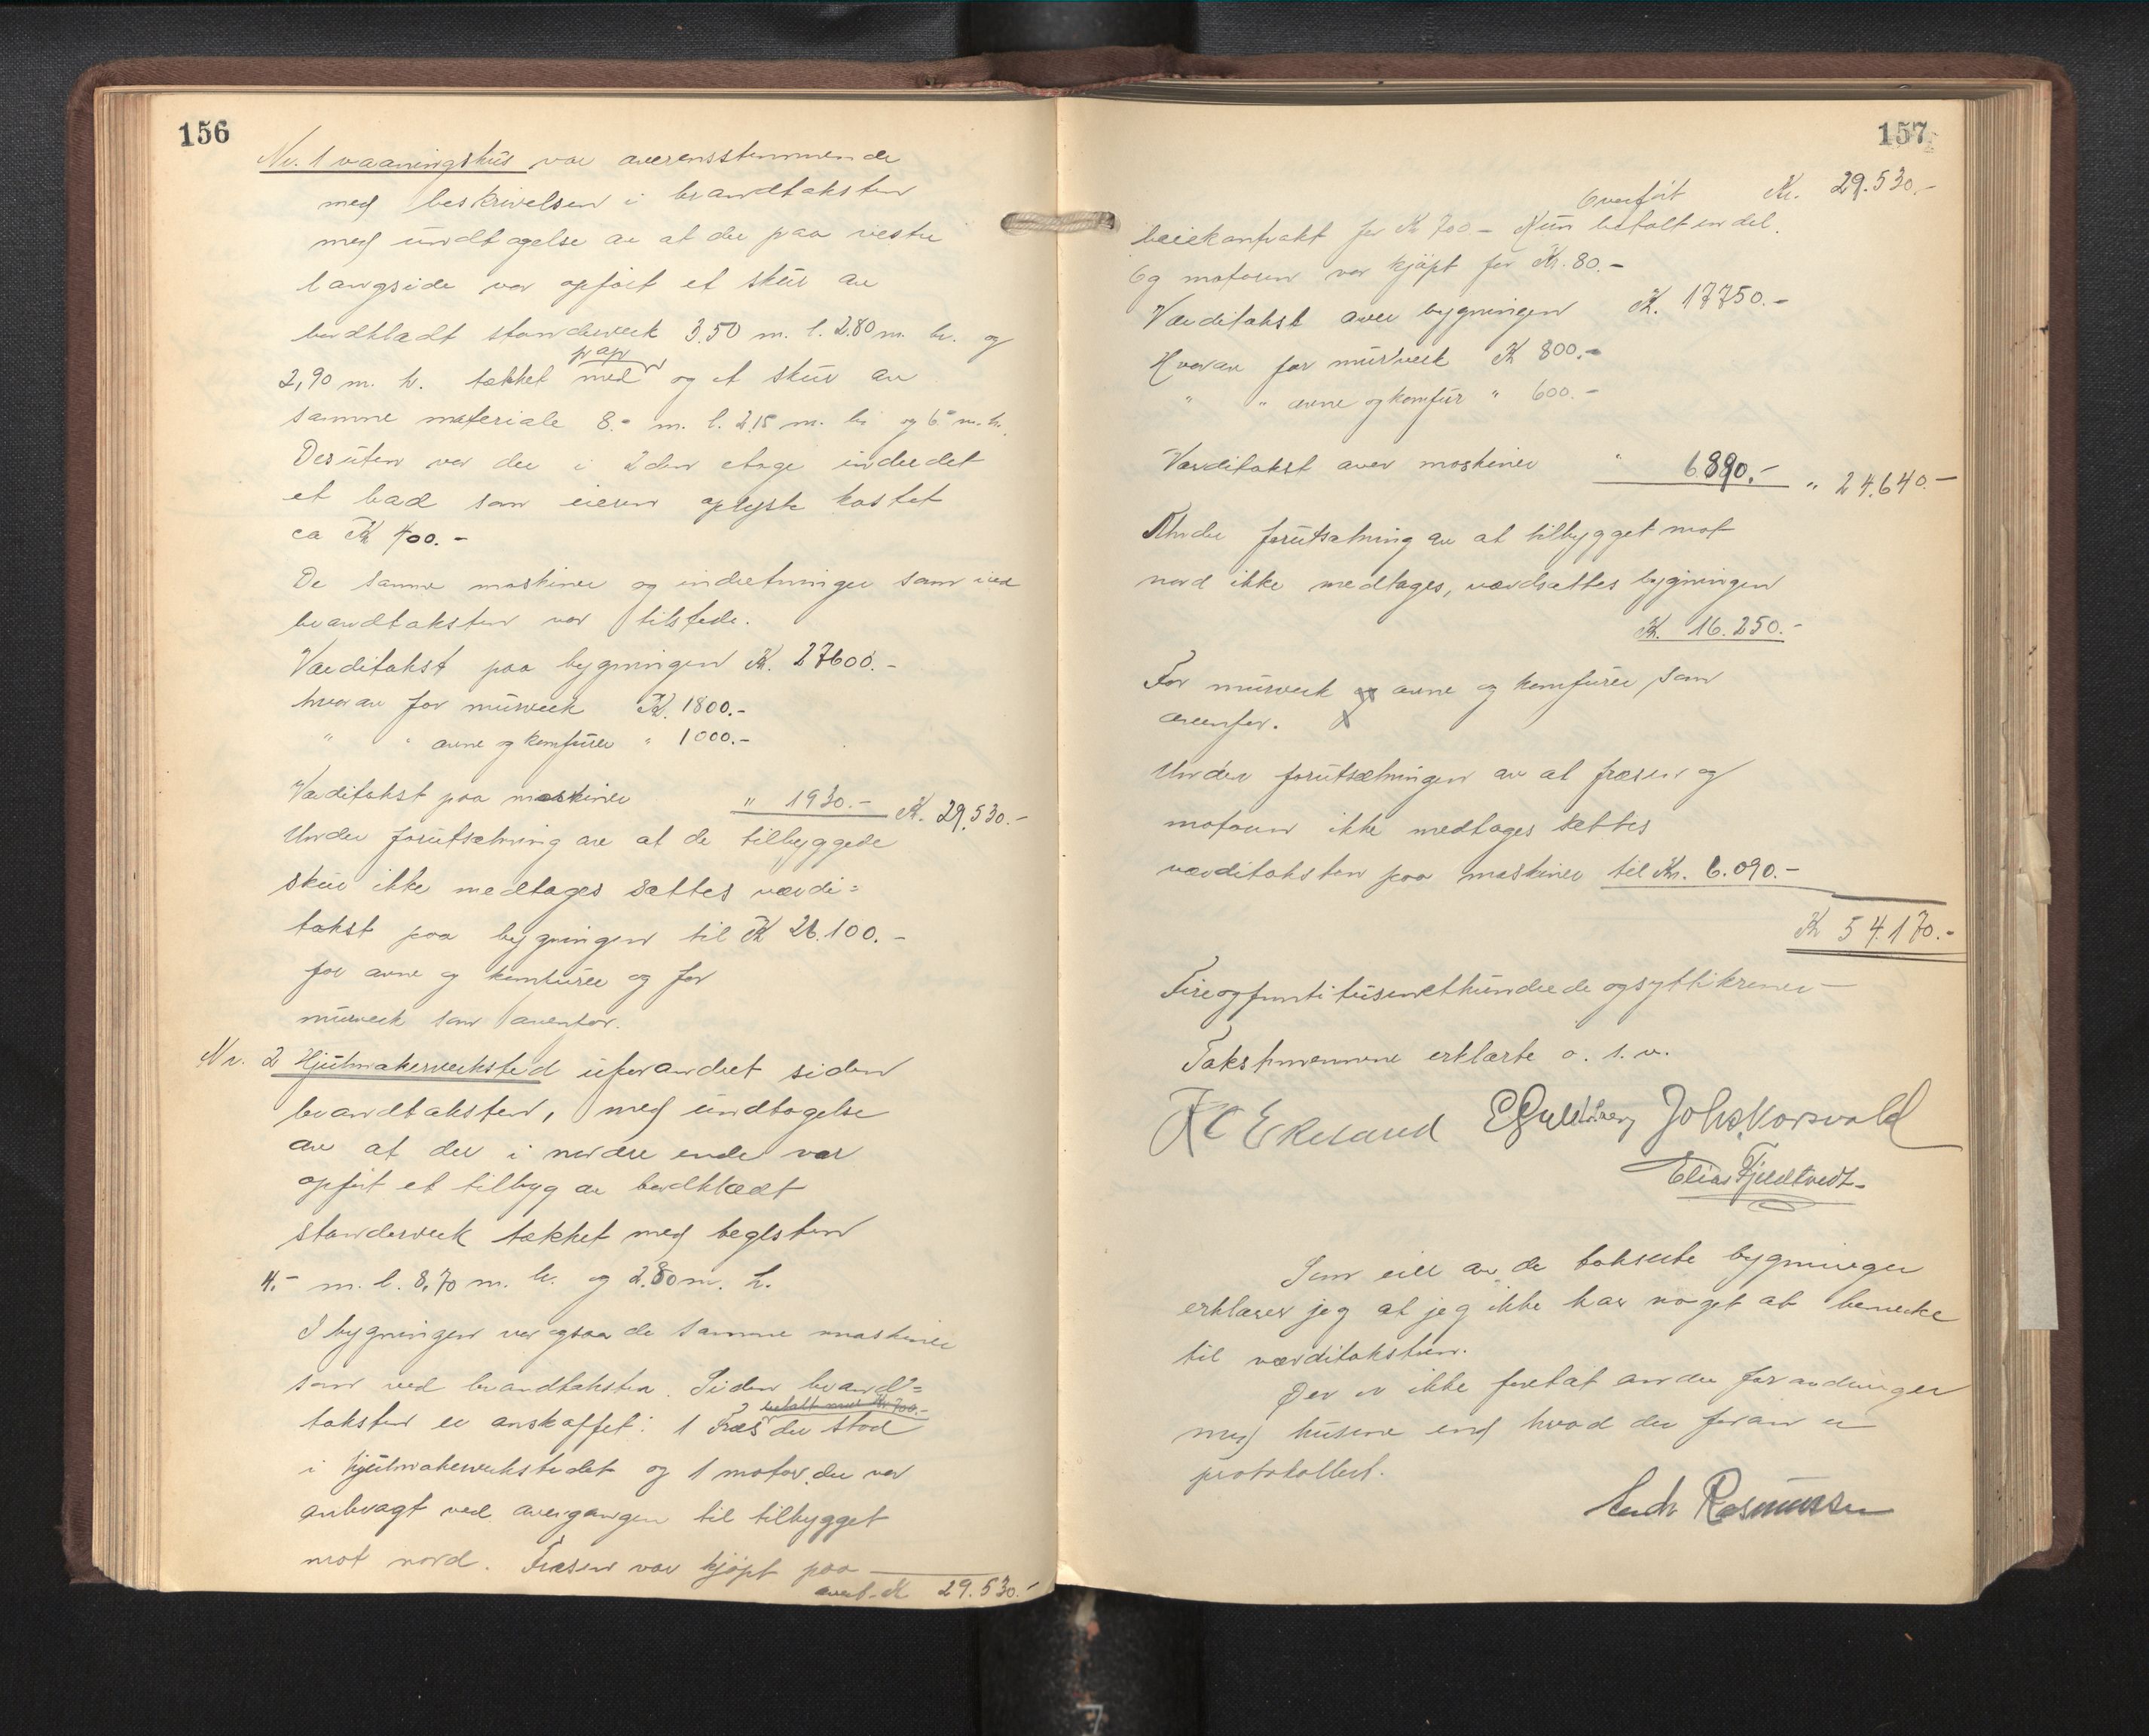 156
Nr. 1 vaaningshus var overensstemmende
med beskrivelsen i brandtaksten
med undtagelse av at der paa vestre
langside var opført et skur av
bordklædt stenderverk 3.50 m. l. 2.80 m. br. og
papp
2,90 m. h. tækket med og et skur av
samme materiale 8.- m. l. 2.15 m. br. og 6- m. h.
Desuten var der i 2den etage indredet
et bad som eieren oplyste kostet
ca Kr 400.-
De samme maskiner og indretninger som ved
brandtaksten var tilstede.
Værditakst paa bygningen Kr. 27600.-
hvorav for murverk Kr. 1800.-
" " ovne og komfurer " 1000.-
Værditakst paa maskiner " 1930.- Kr. 29.530.-
Under forutsætning av at de tilbyggede
skur ikke medtages sættes værdi=
takst paa bygningen til Kr 26.100.-
for ovne og komfurer og for
murverk som ovenfor.
Nr. 2 Hjulmakerverksted uforandret siden
brandtaksten, med undtagelse
av at der i nordre ende var
opført et tilbyg av bordklædt
stenderverk tækket med teglsten
4.- m. l. 8,70 m. br. og 2.80 m. h.
I bygningen var ogsaa de samme maskiner
som ved brandtaksten. Siden brand=
betalt med Kr 700.-
taksten er anskaffet: 1 Fræs der stod
i hjulmakerverkstedet og 1 motor der var
anbragt ved overgangen til tilbygget
mot nord. Fræsen var kjøpt paa
overf. Kr 29.530.-
157
Overført Kr. 29.530.-
leiekontrakt for Kr 700.- Kun betalt en del.
Og motoren var kjøpt for Kr. 80.-
Værditakst over bygningen Kr. 17750.-
Hvorav for murverk Kr 800.-
" " ovne og komfur " 600.-
Værditakst over maskiner " 6890.- " 24.640.-
Under forutsætning av at tilbygget mot
nord ikke medtages, værdsættes bygningen
Kr. 16.250.-
For murverk og ovne og komfurer som
ovenfor.
Under forutsætningen av at fræsen og
motoren ikke medtages sættes
værditaksten paa maskiner til Kr. 6.090.-
Kr 54.170.-
Fireogfemtitusenethundrede og sytti kroner-
Takstmennene erklærte o. s. v.
K C Ekeland E Guldberg Johs. Korsvold
Elias Fjeldtvedt.
Som eier av de takserte bygninger
erklærer jeg at jeg ikke har noget at bemerke
til værditaksten.
Der er ikke foretat andre forandringer
med husene end hvad der foran er
protokollert.
Andr Rasmussen